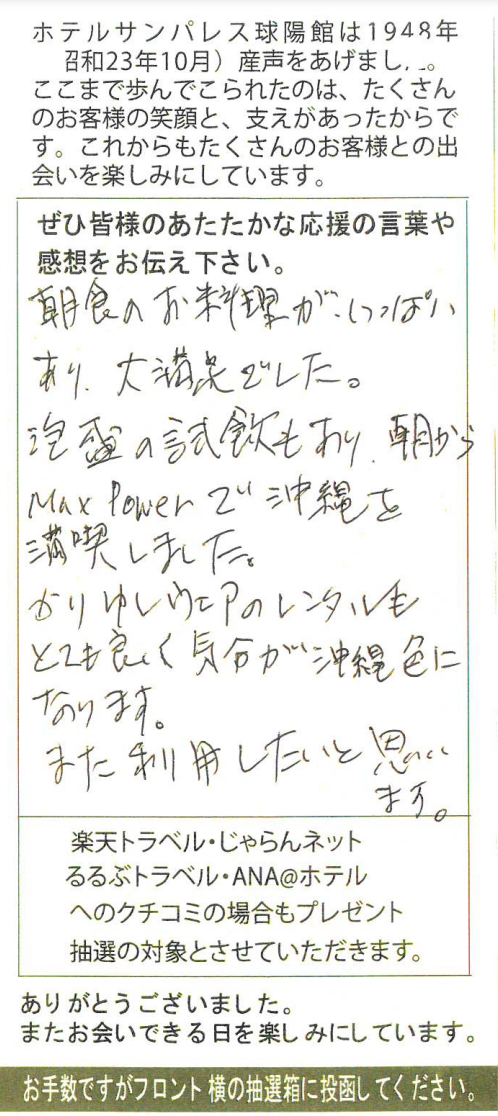 ホテルサンパレス球陽館は1948年
昭和23年10月）産声をあげまし
ここまで歩んでこられたのは、たくさん
のお客様の笑顔と、支えがあったからで
す。これからもたくさんのお客様との出
会いを楽しみにしています。
ぜひ皆様のあたたかな応援の言葉や
感想をお伝え下さい。
朝食のお料理がいっぱい
あり、大満足でした。
泡盛の試飲もあり、朝から
Max Powerで沖縄を
満喫しました。
かりゆしウェアのレンタルも
とても良く気分が沖縄色に
なります。
また利用したいと思い
ます。
楽天トラベル・じゃらんネット
るるぶトラベル・ANA@ホテル
へのクチコミの場合もプレゼント
抽選の対象とさせていただきます。
ありがとうございました。
またお会いできる日を楽しみにしています。
お手数ですがフロント横の抽選箱に投函してください。